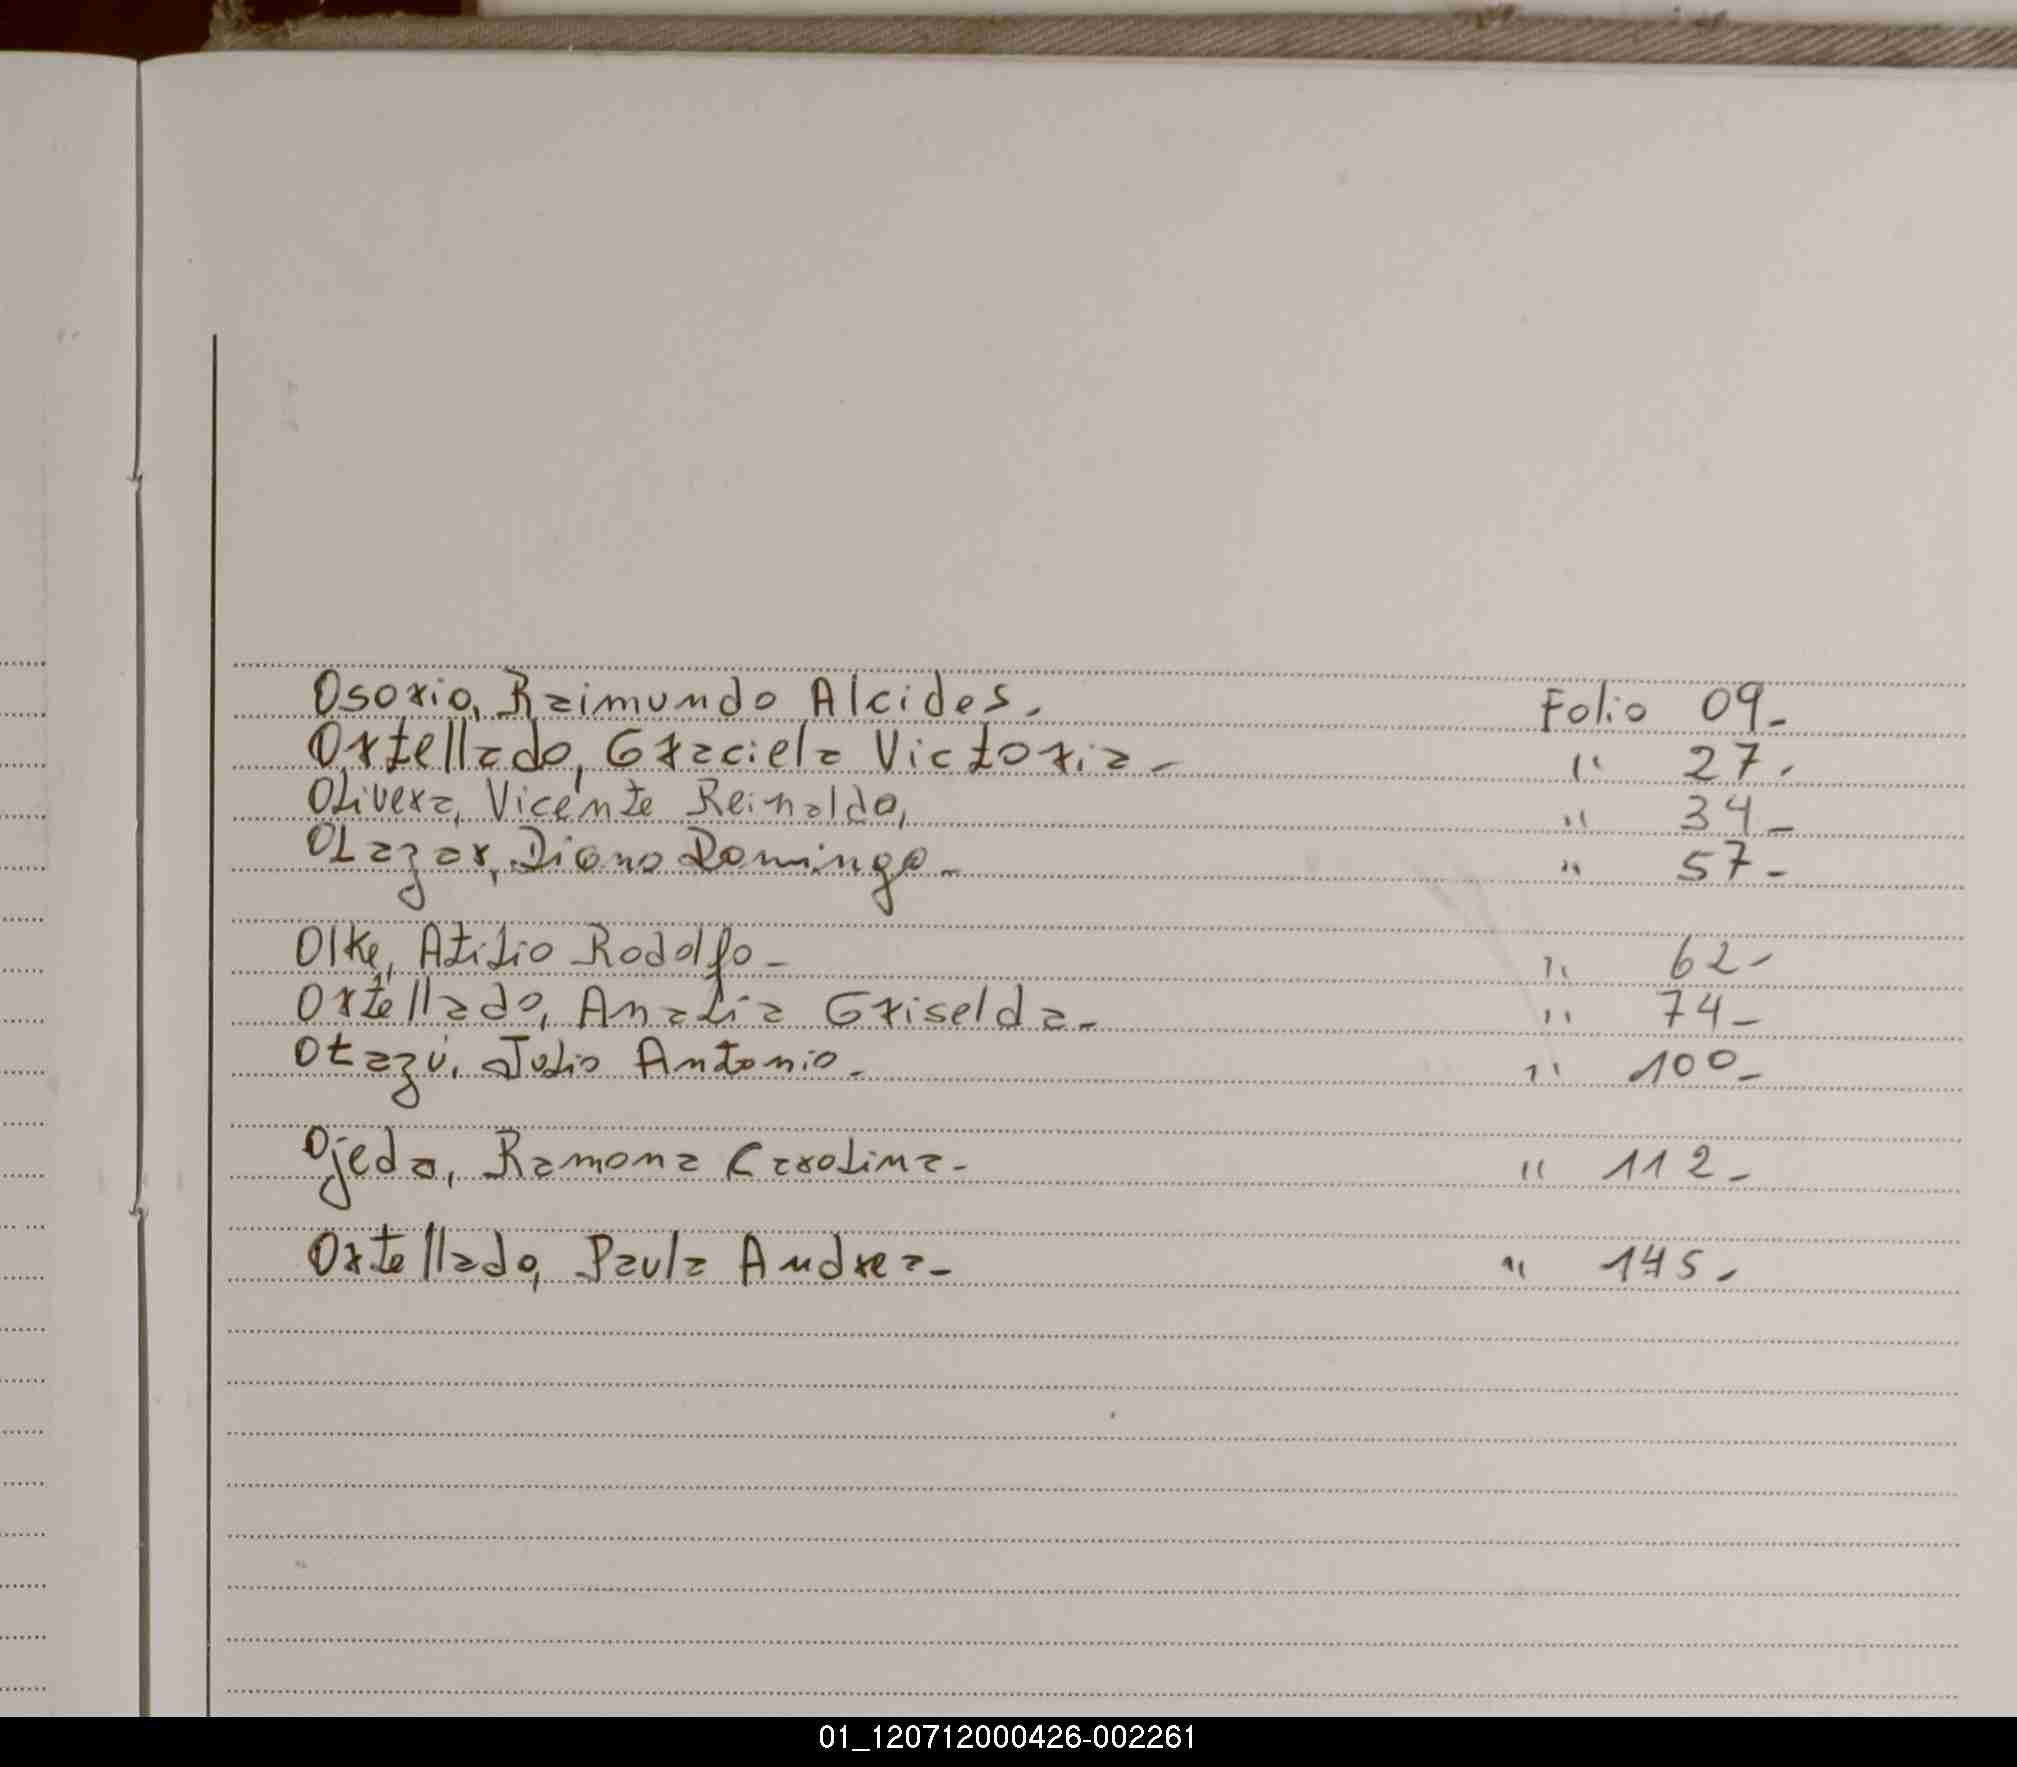 Osorio, Raimundo Alcides. Folio 09-
Ortellado, Graciela Victoria- " 27.
Olivera, Vicente Reinaldo, " 34-
OLazar, Diono Domingo- " 57-
Olke, Atilio Rodolfo- " 62-
Ortellado, Analia Griselda- " 74-
Otazú, Julio Antonio- " 100-
Ojeda, Ramona Carolina- " 112-
Ortellado, Paula Andrea- " 145-
01_120712000426-002261